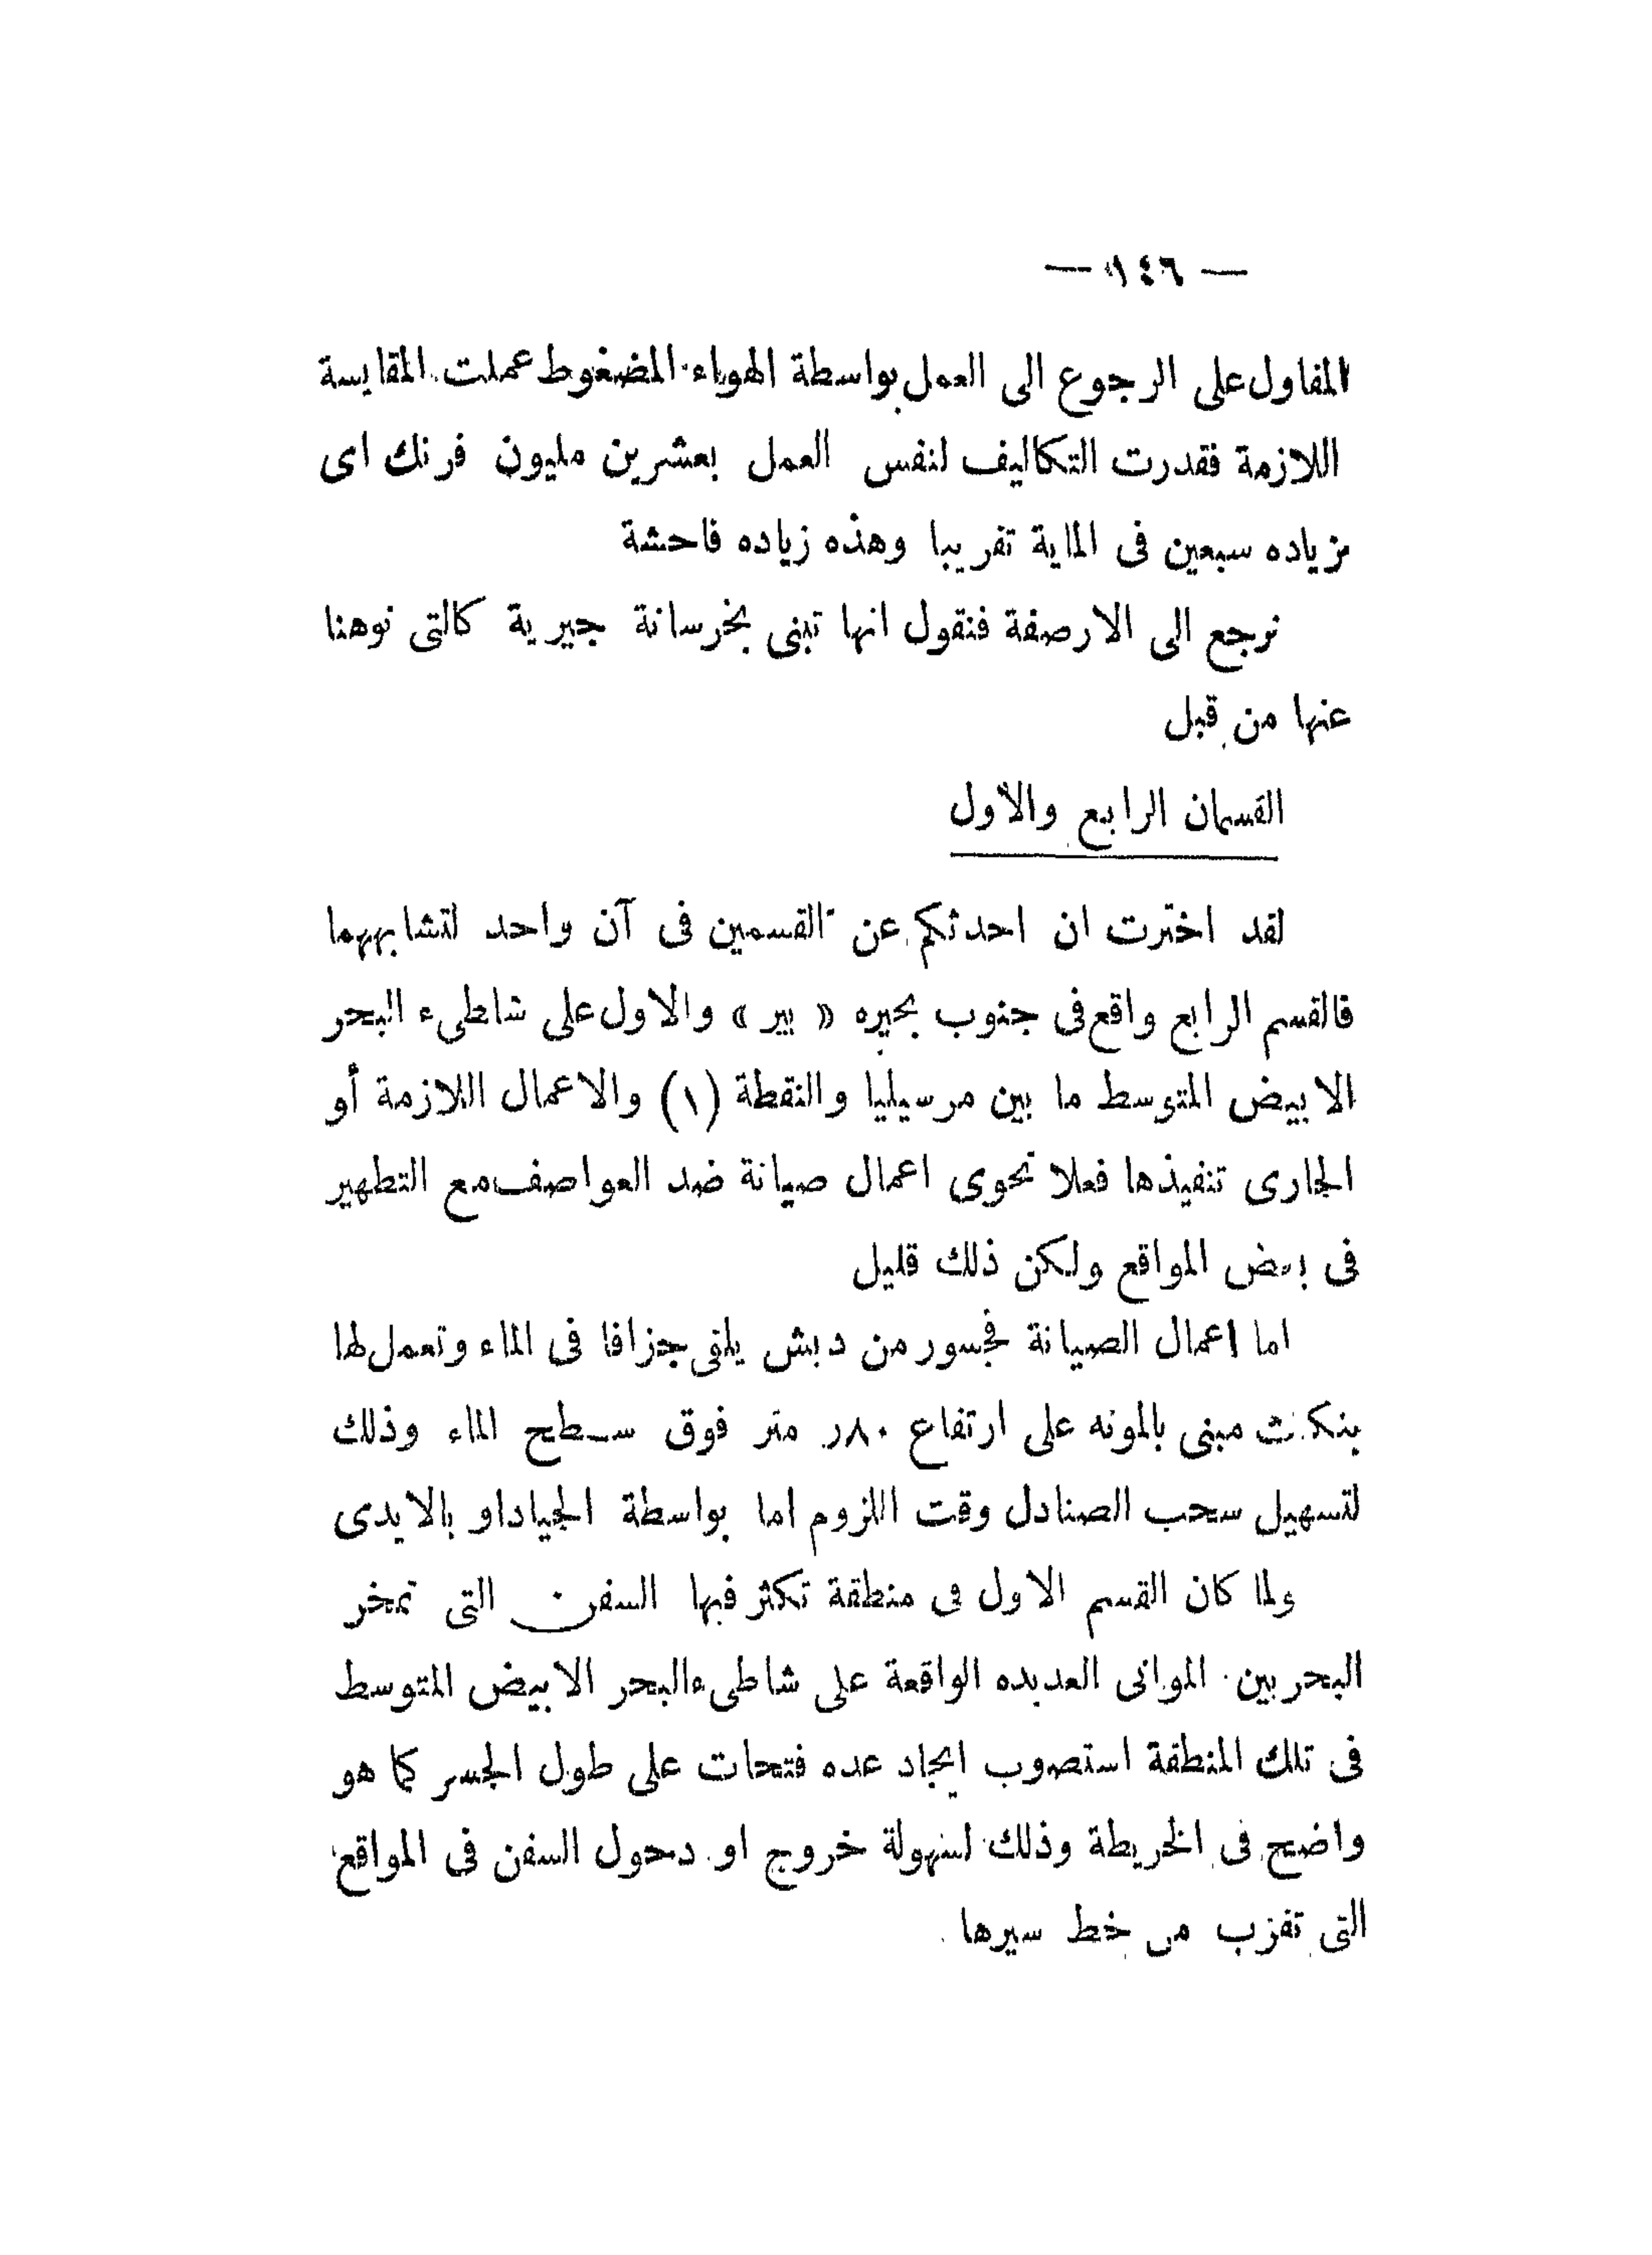 — ١٤٦ —
المفاول على الرجوع الى العمل بواسطة الهواء المضغوط عملت المقايسة
اللازمة فقدرت التكاليف لنفس العمل بعشرين مليون فرنك اى
بزياده سبعين فى الماية تقريبا وهذه زياده فاحشة
نرجع الى الارصفة فنقول انها تبنى بخرسانة جيرية كالتى نوهنا
عنها من قبل
القسمان الرابع والأول
لقد اخترت ان احدثكم عن القسمين فى آن واحد لتشابههما
فالقسم الرابع واقع فى جنوب بحيره « بير » والاول على شاطىء البحر
الابيض المتوسط ما بين مرسيليا والنقطة (١) والاعمال اللازمة أو
الجارى تنفيذها فعلا تحوى اعمال صيانة ضد العواصف مع التطهير
فى بعض المواقع ولكن ذلك قليل
اما اعمال الصيانة فجسور من دبش يلقى جزافا فى الماء وتعمل لها
مبنى بالمونه على ارتفاع ٨٠ر متر فوق سطح الماء وذلك
لتسهيل سحب الصنادل وقت اللزوم اما بواسطة الجياد او بالايدى
ولما كان القسم الاول فى منطقة تكثر فيها السفن التى تمخر
البحر بين الموانى العديده الواقعة على شاطىء البحر الابيض المتوسط
فى تلك المنطقة استصوب ايجاد عده فتحات على طول الجسر كما هو
واضح فى الخريطة وذلك لسهولة خروج او دخول السفن فى المواقع
التى تقرب من خط سيرها